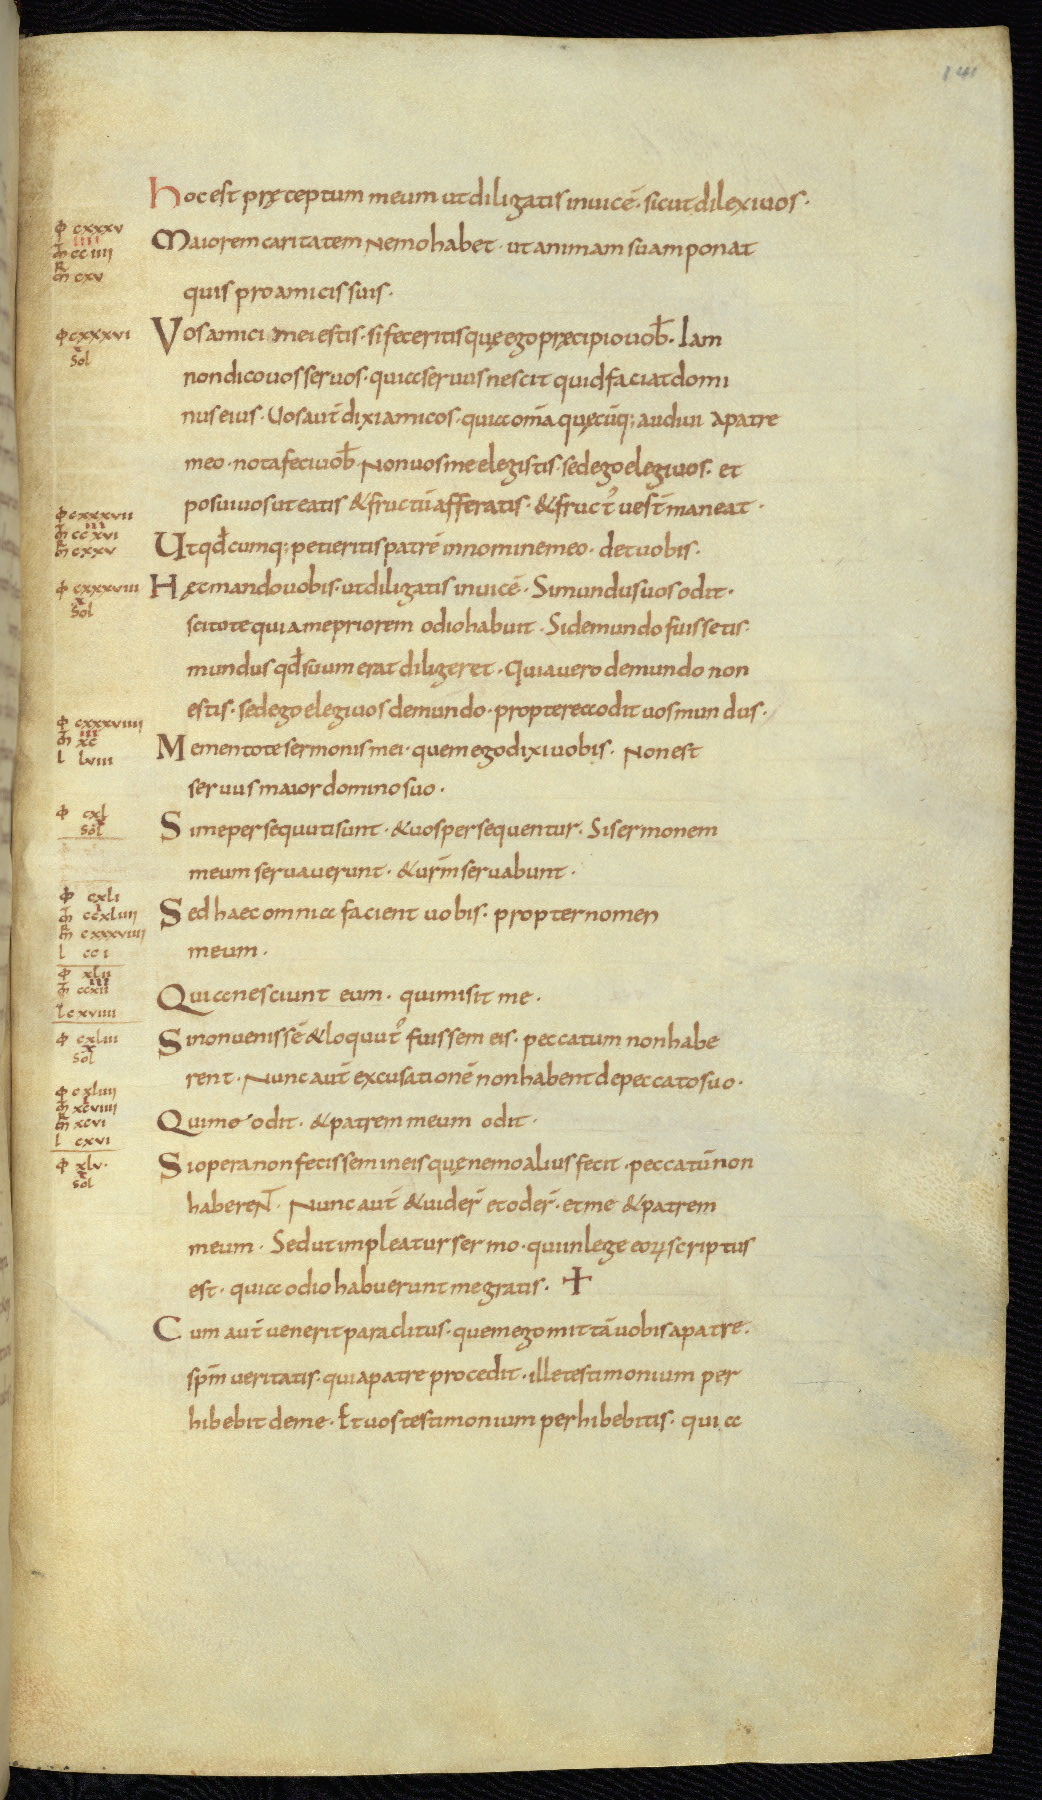 141
hoc est pręceptum meum ut diligatis inuicē· sicut dilexi uos·
φ cxxxv
iiii
m̄ cc iiii
R
m̄ cxv
Maiorem caritatem nemo habet· ut animam suam ponat
quis pro amicis suis·
φ cxxxvi
x
sol
Vos amici mei estis· si feceritis quę ego pręcipio uob̄· Iam
non dico uos seruos· quia seruus nescit quid faciat domi
nus eius· Uos aut̄ dixi amicos· quia om̄a quęcūq; audiui a patre
meo· nota feci uob̄· Non uos me elegistis· sed ego elegi uos· et
posui uos ut eatis & fructū afferatis· & fruct᾿ uest̄ maneat·
φ cxxxvii
iii
m̄ cc xvi
m̄ cxxv
Ut qd̄cumq; petieritis patrē in nomine meo· det uobis·
φ cxxxviii
x
sol
Hęc mando uobis· ut diligatis inuicē· Si mundus uos odit·
scitote quia me priorem odio habuit· Si de mundo fuissetis·
mundus qd̄ suum erat diligeret· Quia uero de mundo non
estis· sed ego elegi uos de mundo· propterea odit uos mundus·
φ cxxxviiii
iii
m̄ xc
l lviii
Mementote sermonis mei· quem ego dixi uobis· Non est
seruus maior domino suo·
φ cxl
x
sol
Si me persequuti sunt· & uos persequentur· Si sermonem
meum seruauerunt· & ur̄m seruabunt·
φ cxli
i
m̄ ccxliiii
R
m̄ cxxxviiii
l cc i
Sed haec omnia facient uobis· propter nomen
meum·
φ xlii
iii
m̄ ccxii
l cxviiii
Quia nesciunt eum· qui misit me·
φ cxliii
x
sol
Si non uenissē & loquut᾿ fuissem eis· peccatum non habe
rent· Nunc aut̄ excusationē non habent de peccato suo·
φ cxliiii
i
m̄ xcviiii
R
m̄ xcvi
l cxvi
Qui me odit· & patrem meum odit·
φ xlv·
x
sol
Si opera non fecissem in eis quę nemo alius fecit· peccatū non
haberent̄· Nunc aut̄ & uider̄ et oder̄· et me & patrem
meum· Sed ut impleatur sermo· qui in lege eoꝝ scriptus
est· quia odio habuerunt me gratis· +
Cum aut̄ uenerit paraclitus· quem ego mittā uobis a patre·
spm̄ ueritatis· qui a patre procedit· ille testimonium per
hibebit de me· Et uos testimonium perhibebitis· quia